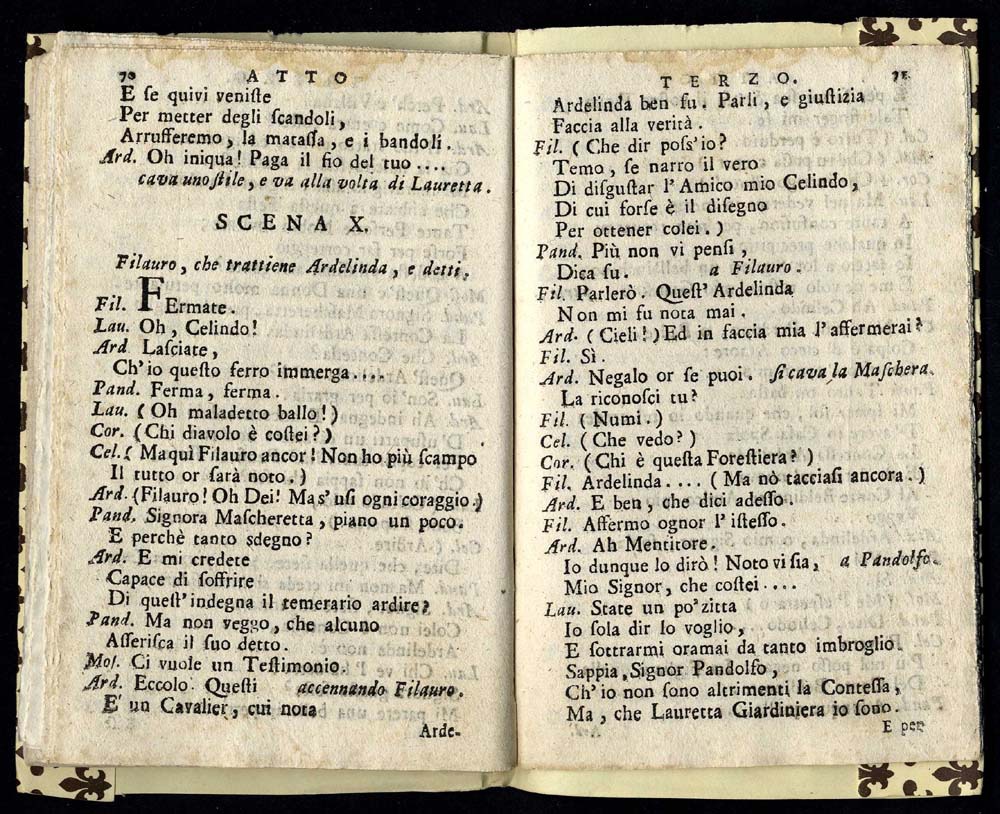 70 ATTO
E se quivi veniſte
Per metter degli ſcandoli,
Arrufferemo, la mataſſa, e i bandoli.
Ard. Oh iniqua! Paga il fio del tuo ....
cava uno ſtile, e va alla volta di Lauretta.
SCENA X.
Filauro, che trattiene Ardelinda, e detti.
Fil. FErmate.
Lau. Oh, Celindo!
Ard. Laſciate,
Ch'io queſto ferro immerga....
Pand. Ferma, ferma.
Lau. (Oh maladetto ballo!)
Cor. (Chi diavolo è coſtei?)
Cel. (Ma quì Filauro ancor! Non ho più ſcampo
Il tutto or ſarà noto.)
Ard. (Filauro! Oh Dei! Ma s'uſi ogni coraggio.)
Pand. Signora Maſcheretta, piano un poco.
E perchè tanto sdegno?
Ard. E mi credete
Capace di ſoffrire
Di queſt'indegna il temerario ardire?
Pand. Ma non veggo, che alcuno
Aſſeriſca il ſuo detto.
Moſ. Ci vuole un Teſtimonio.
Ard. Eccolo. Queſti accennando Filauro.
E' un Cavalier, cui nota
Arde-
TERZO. 71
Ardelinda ben fu. Parli, e giuſtizia
Faccia alla verità.
Fil. (Che dir poſs'io?
Temo, ſe narro il vero
Di diſguſtar l'Amico mio Celindo,
Di cui forſe è il diſegno
Per ottener colei.)
Pand. Più non vi penſi,
Dica ſu. a Filauro.
Fil. Parlerò. Queſt'Ardelinda
Non mi fu nota mai.
Ard. (Cieli!) Ed in faccia mia l'affermerai?
Fil. Sì.
Ard. Negalo or ſe puoi. ſi cava la Maſchera.
La riconoſci tu?
Fil. (Numi.)
Cel. (Che vedo?)
Cor. (Chi è queſta Foreſtiera?)
Fil. Ardelinda.... (Ma nò tacciaſi ancora.)
Ard. E ben, che dici adeſſo.
Fil. Affermo ognor l'iſteſſo.
Ard. Ah Mentitore.
Io dunque lo dirò! Noto vi ſia, a Pandolfo.
Mio Signor, che coſtei ....
Lau. State un po' zitta
Io ſola dir lo voglio,
E ſottrarmi oramai da tanto imbroglio.
Sappia, Signor Pandolfo,
Ch'io non ſono altrimenti la Conteſſa,
Ma, che Lauretta Giardiniera io ſono.
E per